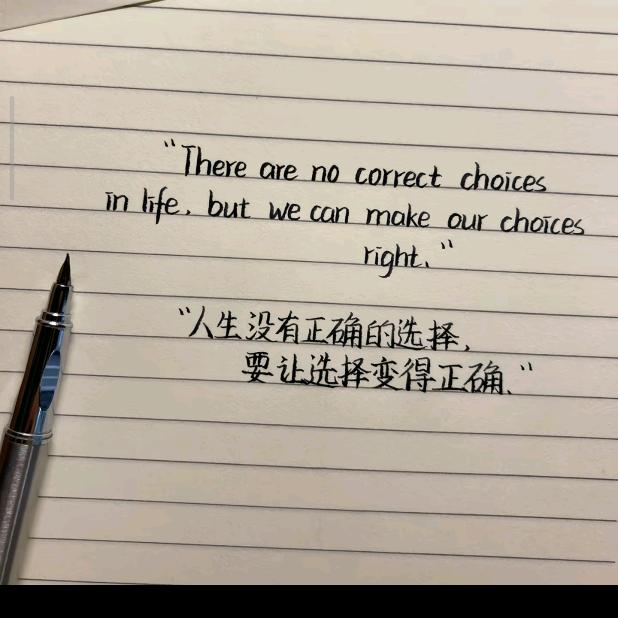 "There are no correct choices
in life. but we can make our choices
right."
"人生没有正确的选择,
要让选择变得正确."